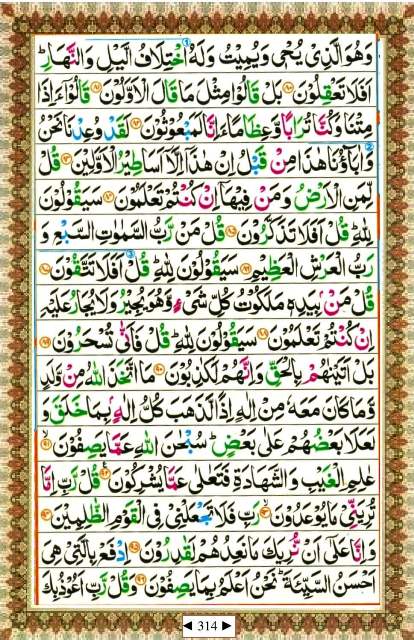 وَهُوَ الَّذِىْ يُحْىٖ وَيُمِيْتُ وَلَهُ اخْتِلَافُ الَّيْلِ وَالنَّهَارِؕ
اَفَلَا تَعْقِلُوْنَ‏ ﴿۸۰﴾ بَلْ قَالُوْا مِثْلَ مَا قَالَ الْاَوَّلُوْنَ‏ ﴿۸۱﴾ قَالُوْۤا ءَاِذَا
مِتْنَا وَكُنَّا تُرَابًا وَّعِظَامًا ءَاِنَّا لَمَبْعُوْثُوْنَ‏ ﴿۸۲﴾ لَقَدْ وُعِدْنَا نَحْنُ
وَاٰبَآؤُنَا هٰذَا مِنْ قَبْلُ اِنْ هٰذَاۤ اِلَّاۤ اَسَاطِيْرُ الْاَوَّلِيْنَ‏ ﴿۸۳﴾ قُلْ
لِّمَنِ الْاَرْضُ وَمَنْ فِيْهَاۤ اِنْ كُنْتُمْ تَعْلَمُوْنَ‏ ﴿۸۴﴾ سَيَقُوْلُوْنَ
لِلّٰهِؕ قُلْ اَفَلَا تَذَكَّرُوْنَ‏ ﴿۸۵﴾ قُلْ مَنْ رَّبُّ السَّمٰوٰتِ السَّبْعِ وَ
رَبُّ الْعَرْشِ الْعَظِيْمِ‏ ﴿۸۶﴾ سَيَقُوْلُوْنَ لِلّٰهِؕ قُلْ اَفَلَا تَتَّقُوْنَ‏ ﴿۸۷﴾
قُلْ مَنْۢ بِيَدِهٖ مَلَكُوْتُ كُلِّ شَىْءٍ وَّهُوَ يُجِيْرُ وَلَا يُجَارُ عَلَيْهِ
اِنْ كُنْتُمْ تَعْلَمُوْنَ‏ ﴿۸۸﴾ سَيَقُوْلُوْنَ لِلّٰهِؕ قُلْ فَاَنّٰى تُسْحَرُوْنَ‏ ﴿۸۹﴾
بَلْ اَتَيْنٰهُمْ بِالْحَقِّ وَاِنَّهُمْ لَكٰذِبُوْنَ‏ ﴿۹۰﴾ مَا اتَّخَذَ اللّٰهُ مِنْ وَّلَدٍ
وَّمَا كَانَ مَعَهٗ مِنْ اِلٰهٍ اِذًا لَّذَهَبَ كُلُّ اِلٰهٍۢ بِمَا خَلَقَ وَ
لَعَلَا بَعْضُهُمْ عَلٰى بَعْضٍؕ سُبْحٰنَ اللّٰهِ عَمَّا يَصِفُوْنَۙ‏ ﴿۹۱﴾
عٰلِمِ الْغَيْبِ وَالشَّهَادَةِ فَتَعٰلٰى عَمَّا يُشْرِكُوْنَ‏ ﴿۹۲﴾ قُلْ رَّبِّ اِمَّا
تُرِيَنِّىْ مَا يُوْعَدُوْنَۙ‏ ﴿۹۳﴾ رَبِّ فَلَا تَجْعَلْنِىْ فِى الْقَوْمِ الظّٰلِمِيْنَ‏ ﴿۹۴﴾
وَاِنَّا عَلٰٓى اَنْ نُّرِيَكَ مَا نَعِدُهُمْ لَقٰدِرُوْنَ‏ ﴿۹۵﴾ اِدْفَعْ بِالَّتِىْ هِىَ
اَحْسَنُ السَّيِّئَةَؕ نَحْنُ اَعْلَمُ بِمَا يَصِفُوْنَ‏ ﴿۹۶﴾ وَقُلْ رَّبِّ اَعُوْذُ بِكَ
◄ 314 ►